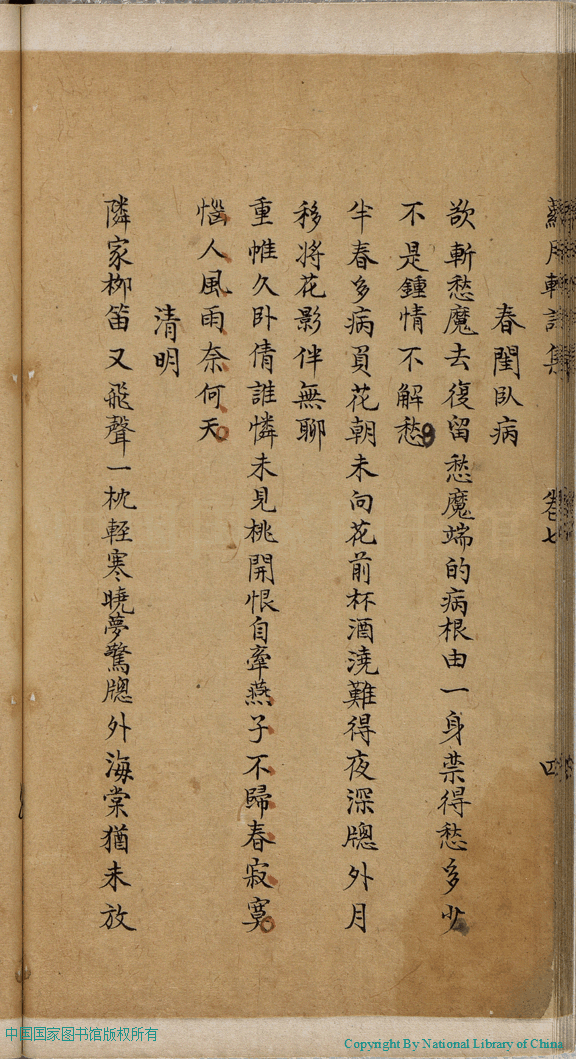 春閨臥病
欲斬愁魔去復留愁魔端的病根由一身禁得愁多少
不是鍾情不解愁
半春多病負花朝未向花前杯酒澆難得夜深牕外月
移將花影伴無聊
重帷久卧倩誰憐未見桃開恨自牽燕子不歸春寂寞
惱人風雨奈何天
清明
隣家柳笛又飛聲一枕輕寒曉夢驚牕外海棠猶未放
卷七
四
中国国家图书馆版权所有
Copyright By National Library of China